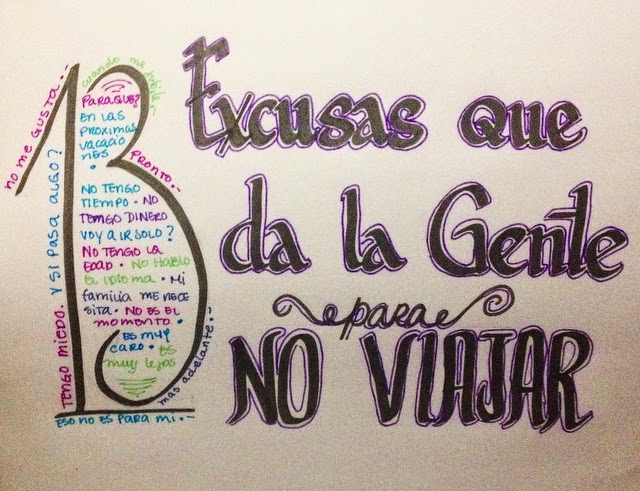 13
Excusas que
da la Gente
para
NO VIAJAR
no me GUSTA.-
cuando me jubile.-
PARAQUE?
EN LAS
PROXIMAS
VACACIO
NES
PRONTO.-
NO TENGO
TIEMPO. NO
TENGO DINERO
VOY A IR SOLO?
NO TENGO LA
EDAD. NO HABLO
EL IDIOMA. Mi
familia ME NECE
SITA. NO ES EL
MOMENTO.
ES MUY
CARO. ES
MUY LEJOS
mas adelante.-
TENGO MIEDO. Y SI PASA ALGO?
ESO NO ES PARA MI.-